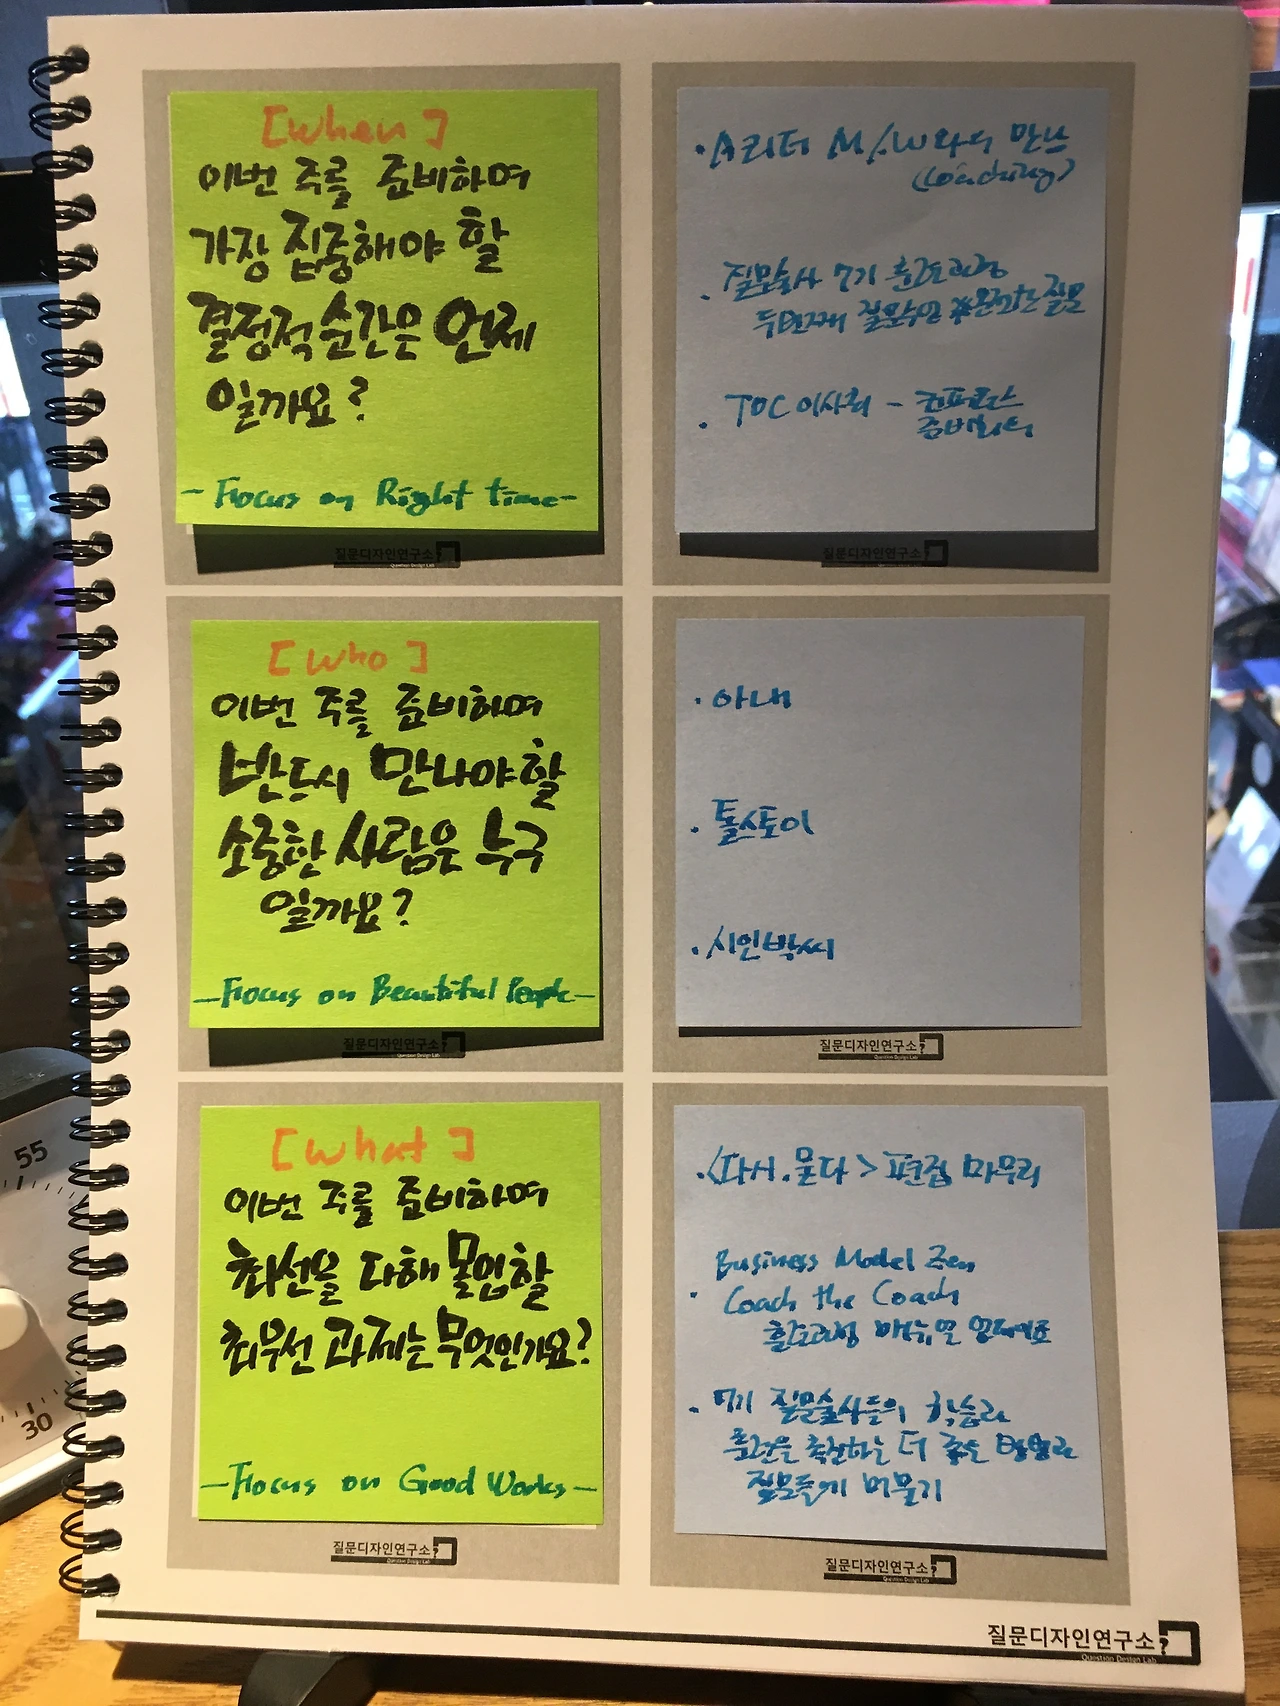 [When]
이번 주를 준비하며
가장 집중해야 할
결정적 순간은 언제
일까요?
- Focus on Right time -
질문디자인연구소
Question Design Lab
· A 리더 M/W와의 만남
(Coaching)
· 질문술사 7기 훈련과정
두번째 질문수업
· TOC 이사회 - 컨퍼런스
준비회의
질문디자인연구소
Question Design Lab
[Who]
이번 주를 준비하며
반드시 만나야할
소중한 사람은 누구
일까요?
- Focus on Beautiful People -
질문디자인연구소
Question Design Lab
· 아내
· 톨스토이
· 시인박씨
질문디자인연구소
Question Design Lab
[What]
이번 주를 준비하며
최선을 다해 몰입할
최우선 과제는 무엇인가요?
- Focus on Good Works -
질문디자인연구소
Question Design Lab
· <다시.묻다> 편집 마무리
Business Model Zen
· Coach the Coach
훈련과정 매뉴얼 업데이트
· 7기 질문술사들의 학습과
훈련을 촉진하는 더 좋은 방법과
질문들에 머물기
질문디자인연구소
Question Design Lab
질문디자인연구소
Question Design Lab
55
30